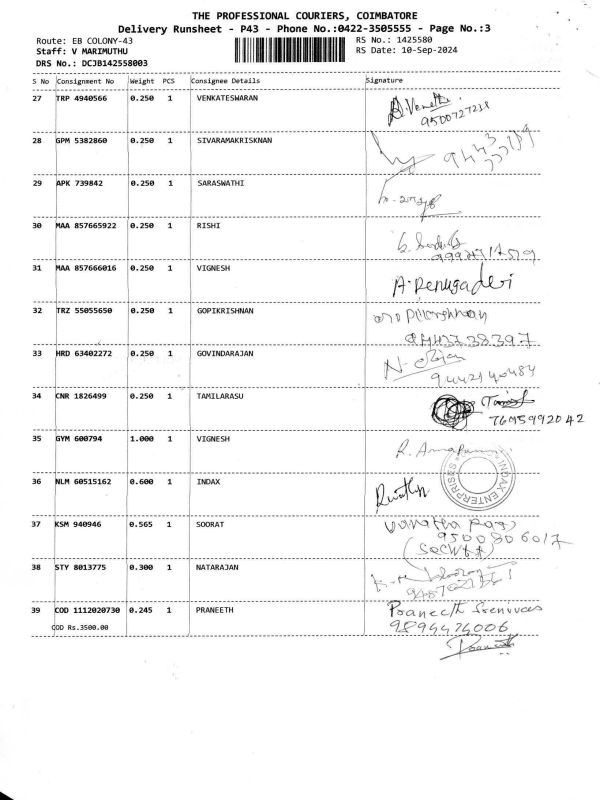 THE PROFESSIONAL COURIERS, COIMBATORE
Delivery Runsheet - P43 - Phone No.:0422-3505555 - Page No.:3
Route: EB COLONY-43 RS No.: 1425580
Staff: V MARIMUTHU RS Date: 10-Sep-2024
DRS No.: DCJB142558003
S No Consignment No Weight PCS Consignee Details Signature
27 TRP 4940566 0.250 1 VENKATESWARAN
9500727238
28 GPM 5382860 0.250 1 SIVARAMAKRISKNAN
29 APK 739842 0.250 1 SARASWATHI
30 MAA 857665922 0.250 1 RISHI
31 MAA 857666016 0.250 1 VIGNESH A. Renugadevi
32 TRZ 55055650 0.250 1 GOPIKRISHNAN
33 HRD 63402272 0.250 1 GOVINDARAJAN
34 CNR 1826499 0.250 1 TAMILARASU
7695992042
35 GYM 600794 1.000 1 VIGNESH
36 NLM 60515162 0.600 1 INDAX INDAX ENTERPRISES
37 KSM 940946 0.565 1 SOORAT
9500806017
38 STY 8013775 0.300 1 NATARAJAN
39 COD 1112020730 0.245 1 PRANEETH Praneeth
COD Rs.3500.00 9894474006